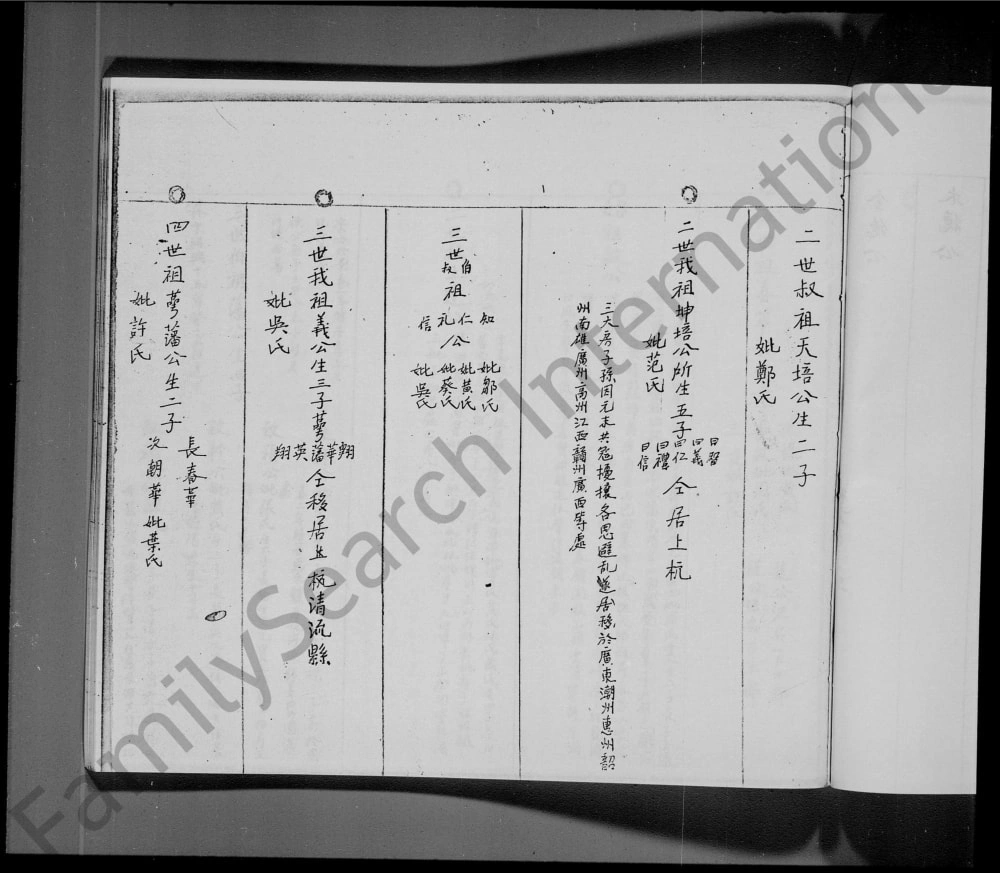 二世叔祖天培公生二子
妣鄭氏
二世我祖坤培公所生五子曰智曰義曰仁曰禮曰信仝居上杭
妣范氏
三大房子孫因元末共寇擾攘各思避乱遂居移於廣東潮州惠州韶
州南雄廣州高州江西贛州廣西等處
三世伯叔祖知仁礼信公
妣鄒氏
妣黄氏
妣蔡氏
妣吳氏
三世我祖義公生三子萼藩華翔英翔仝移居上杭清流縣
妣吳氏
四世祖萼藩公生二子
長春華
次朝華妣葉氏
妣許氏
FamilySearch International